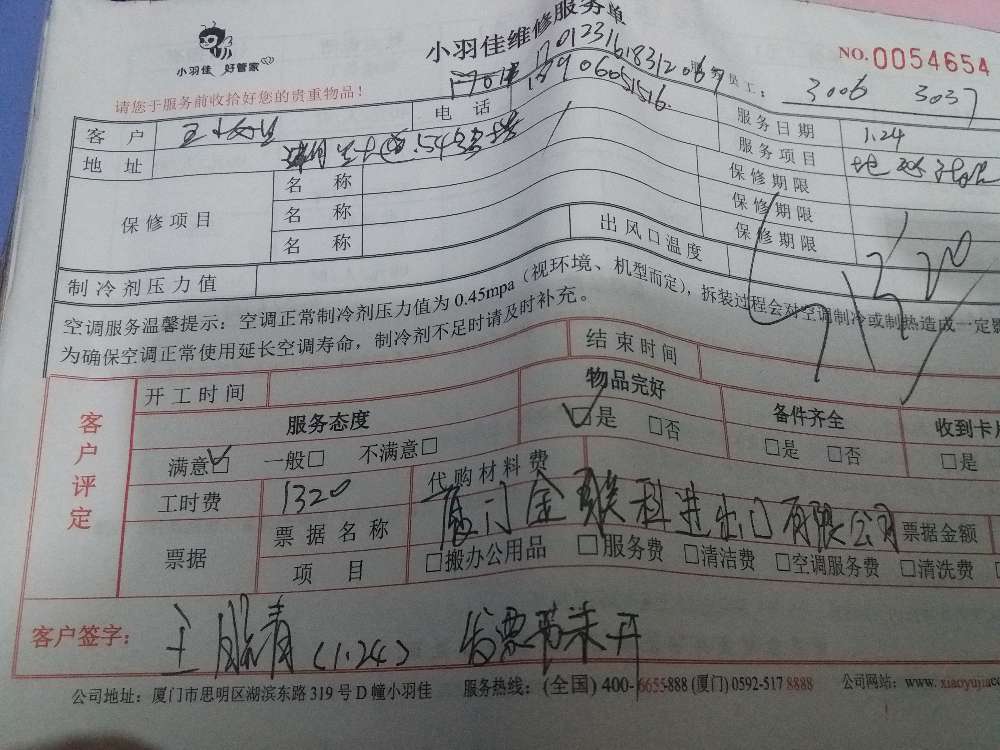 小羽佳维修服务单
小羽佳 好管家
NO.0054654
请您于服务前收拾好您的贵重物品!
员工: 3006 3037
客户 王小姐 电话 服务日期 1.24
地址 服务项目
保修项目 名称 保修期限
名称 保修期限
名称 保修期限
1320
制冷剂压力值 出风口温度
空调服务温馨提示:空调正常制冷剂压力值为0.45mpa(视环境、机型而定),拆装过程会对空调制冷或制热造成一定影
为确保空调正常使用延长空调寿命,制冷剂不足时请及时补充。
客户评定
开工时间 结束时间
服务态度 物品完好 备件齐全 收到卡片
满意□ 一般□ 不满意□ □是 □否 □是 □否 □是
工时费 1320 代购材料费
票据 票据名称 厦门金联科进出口有限公司 票据金额
项目 □搬办公用品 □服务费 □清洁费 □空调服务费 □清洗费
客户签字: (1.24) 发票 未开
公司地址:厦门市思明区湖滨东路319号D幢小羽佳 服务热线:(全国)400-6655-888 (厦门)0592-517 8888 公司网站:www.xiaoyujia